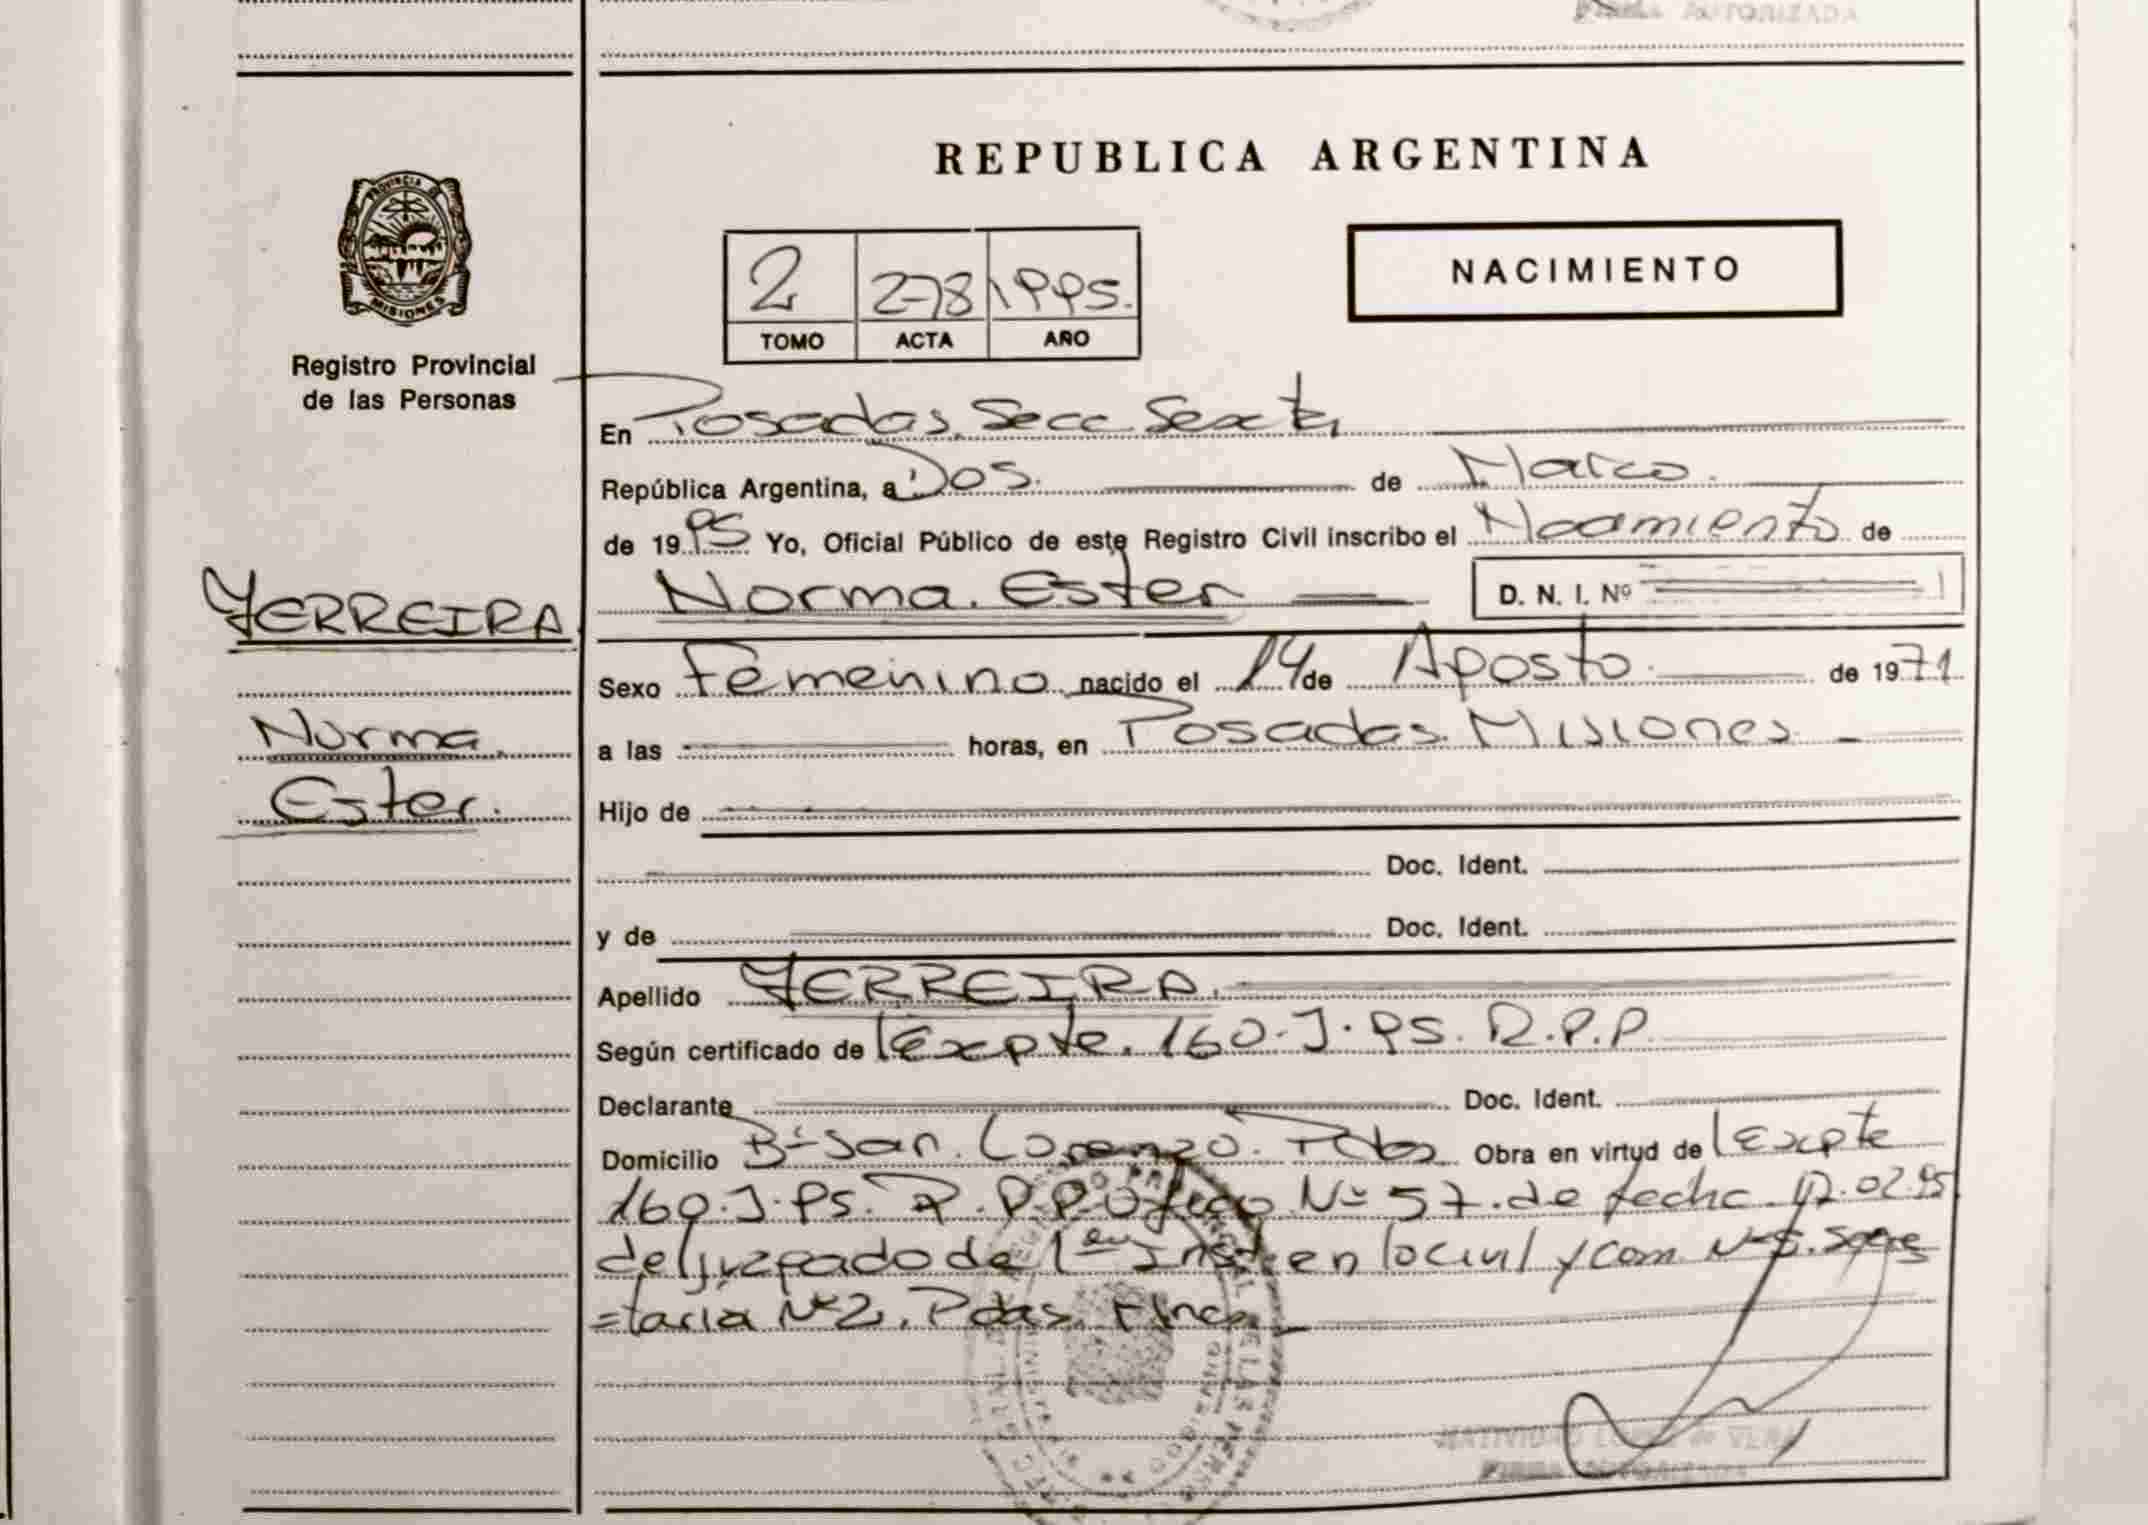 FIRMA AUTORIZADA
REPUBLICA ARGENTINA
PROVINCIA DE
MISIONES
Registro Provincial
de las Personas
2 278 1995.
TOMO ACTA AÑO
NACIMIENTO
En Posadas. Secc. Sexta
República Argentina, a Dos. de Marzo.
de 1995 Yo, Oficial Público de este Registro Civil inscribo el Nacimiento de
Norma. Ester D. N. I. Nº
FERREIRA
Norma.
Ester.
Sexo Femenino nacido el 14 de Agosto de 1971.
a las horas, en Posadas. Misiones
Hijo de
Doc. Ident.
y de Doc. Ident.
Apellido FERREIRA.
Según certificado de Expte. 160. J. 95. R.P.P.
Declarante Doc. Ident.
Domicilio Bº San. Lorenzo. Pdas Obra en virtud de Expte
160. J. 95. R. P.P. Oficio Nº 57. de fecha
del juzgado de 1era Inst. en lo civil y com Secre
=taria Nº 2. Pdas.
FIRMA AUTORIZADA